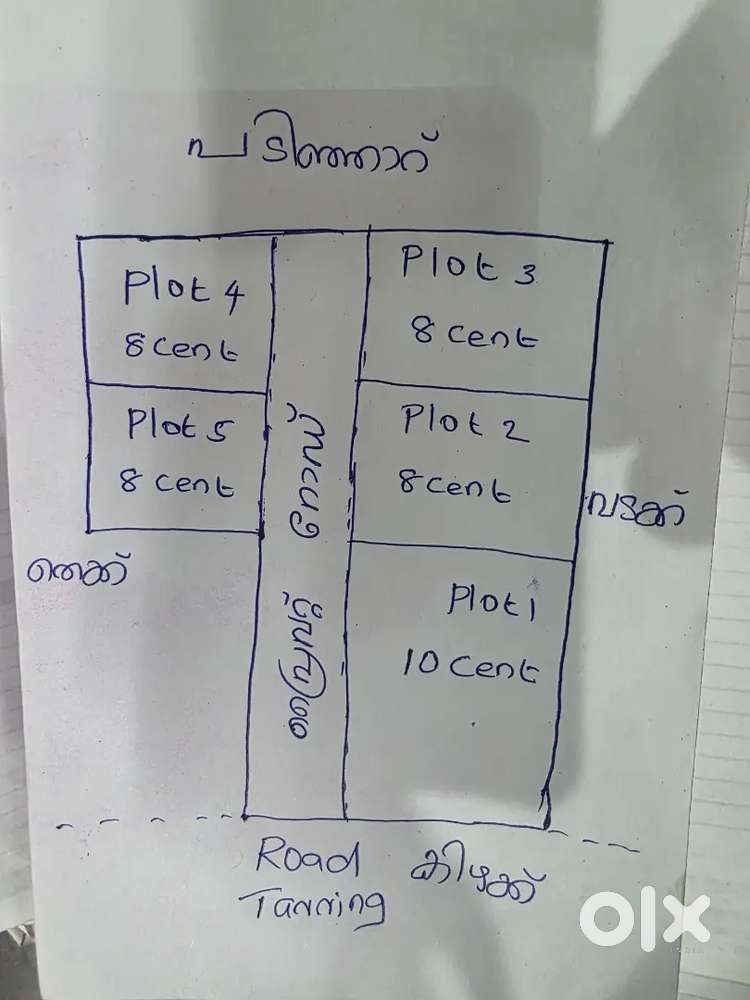 പടിഞ്ഞാറ്
Plot 4
8 cent
Plot 3
8 cent
Plot 5
8 cent
Plot 2
8 cent
വടക്ക്
തെക്ക്
Plot 1
10 cent
Road
Tarring
കിഴക്ക്
olx